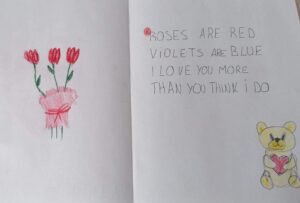 ROSES ARE RED
VIOLETS ARE BLUE
I LOVE YOU MORE
THAN YOU THINK i DO